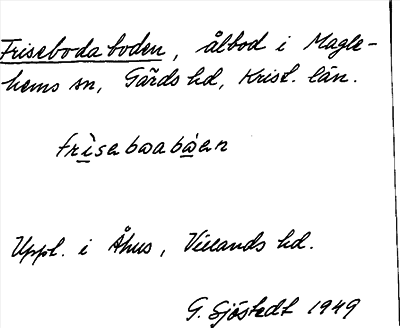 Friseboda boden, ålbod i Magle-
hems sn, Gärds hd, Krist. län.
frìseboabòen
Uppt. i Åhus, Villands hd.
G. Sjöstedt 1949